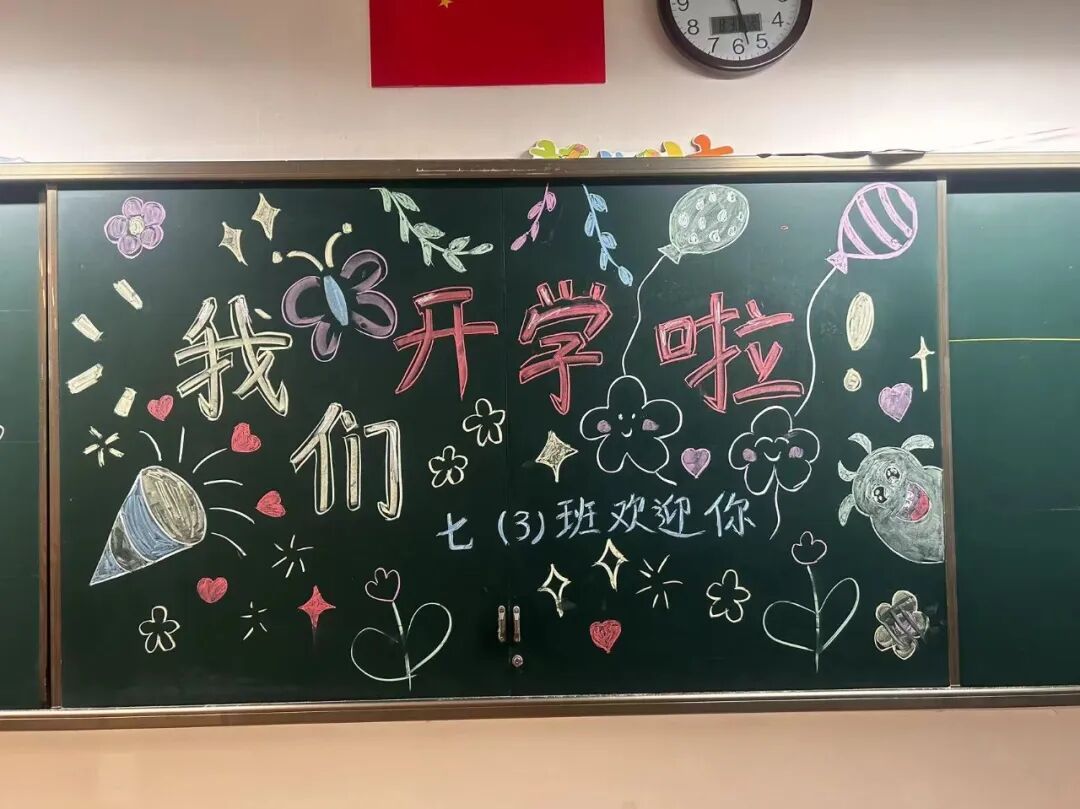 我们
开学啦
七(3)班欢迎你
9 8 7 6 5 4